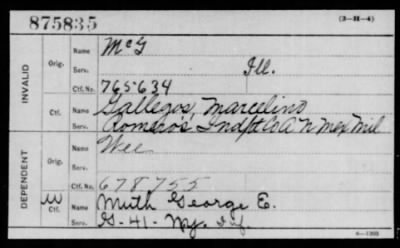 875835
(3-H-4)
INVALID
Orig.
Name McG
Serv. Ill.
Ctf. No. 765634
Ctf.
Name Gallegos, Marcelino
Serv. Romero's Indpt Co A N Mex Mil
DEPENDENT
Orig.
Name Wee
Serv.
Ctf. No. 678755
W Ctf.
Name Muth George E.
Serv. G-41-Ny. Inf.
6-1303